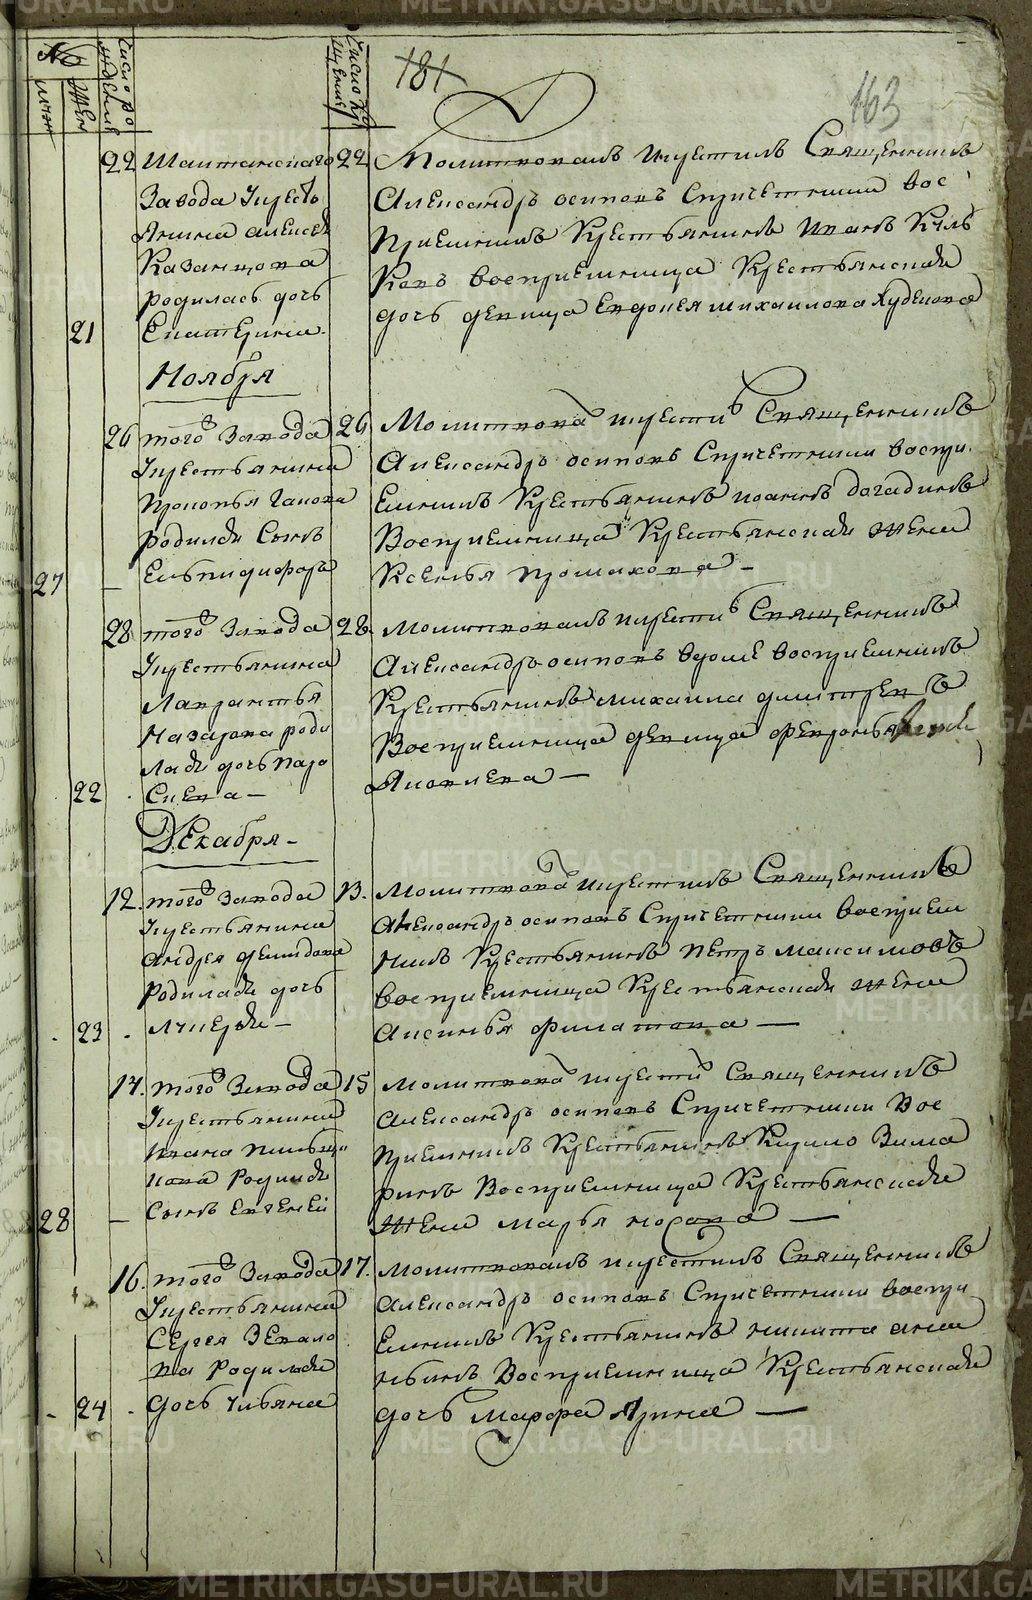 №
мужч
женс
Число рождения
Число крещения
181
163
22 Шаитанскаго 22
Завода Укресть
янина алексея
Казанцова
родилась дочь
21 Екатерина
Молитвовалъ икрестилъ Священникъ
Александръ осиповъ Спричетники вос
приемникъ Крестьянинъ Иванъ
воспреемница Крестьянская
дочь девица Евдокея михаилова
Ноября
26 того Завода 26
Укрестьянина
Прокопья
родился Сынъ
27 — Елпидифоръ
Молитвова икрести Священникъ
Александръ осиповъ Спричетники воспри
емникъ Крестьянинъ иоаннъ догадинъ
Воспреемница Крестьянская жена
Ксенья промахова —
28 того Завода 28
Укрестьянина
Лаврантья
Назарова роди
лася дочь пара
22 скева —
Молитвовалъ икрести Священникъ
Александръ осиповъ вдоме восприемникъ
Крестьянинъ михаила дмитревъ
Воспреемница девица февронья
Яковлева —
Декабря —
12. того Завода 13.
Укрестьянина
андрея демидова
Родилася дочь
23 Лукерья —
Молитвова икрестилъ Священникъ
Александръ осиповъ Спричетники восприем
никъ Крестьянинъ петръ максимовъ
воспреемница Крестьянская жена
аксинья филатова —
14. того Завода 15
Укрестьянина
Ивана
Родился
28 — Сынъ Евгений
Молитвова икрести Священникъ
Александръ осиповъ Спричетники Вос
приемникъ Крестьянинъ Кирило Зима
ринъ Воспреемница Крестьянская
жена Марья носова —
16. того Завода 17.
Укрестьянина
Сергея
ва Родилася
24 дочь ульяна
Молитвовалъ икрестилъ Священникъ
Александръ осиповъ Спричетники воспри
емникъ Крестьянинъ никита
Воспреемница Крестьянская
дочь Марфа —
METRIKI.GASO-URAL.RU